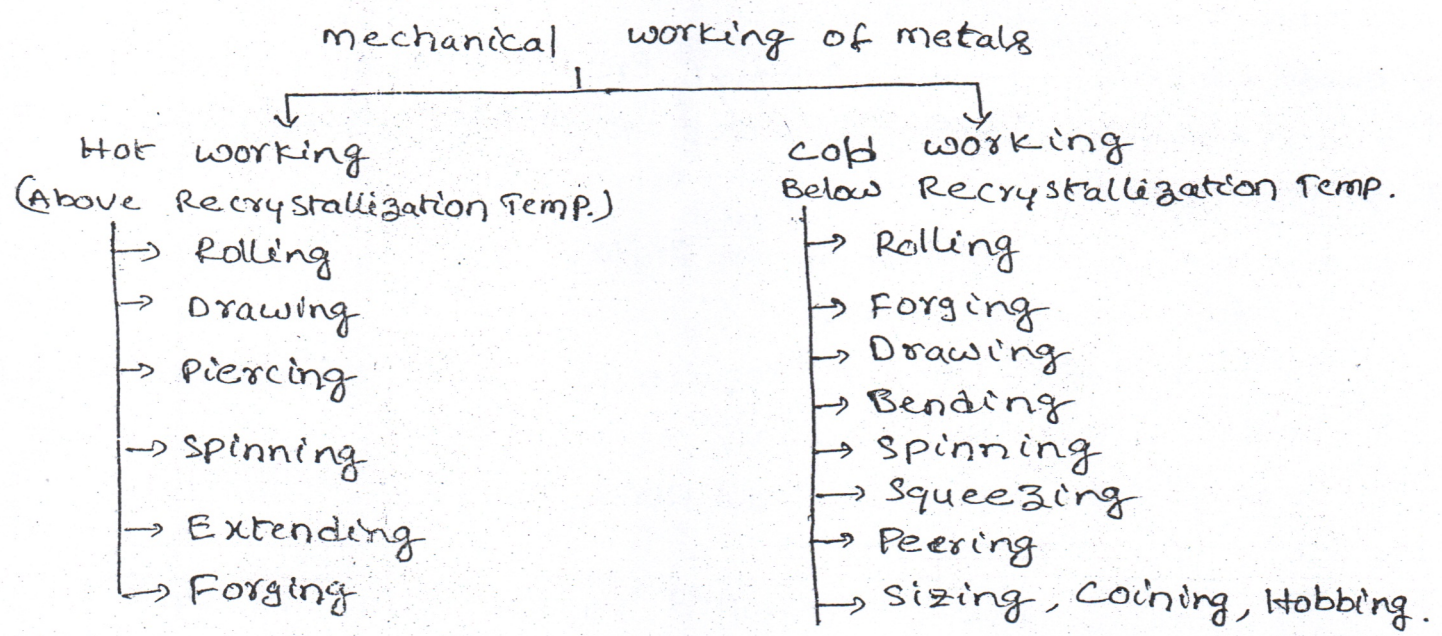 mechanical working of metals
Hot working
(Above Recrystallization Temp.)
Rolling
Drawing
Piercing
Spinning
Extending
Forging
Cold working
Below Recrystallization Temp.
Rolling
Forging
Drawing
Bending
Spinning
Squeezing
Peering
Sizing, Coining, Hobbing.